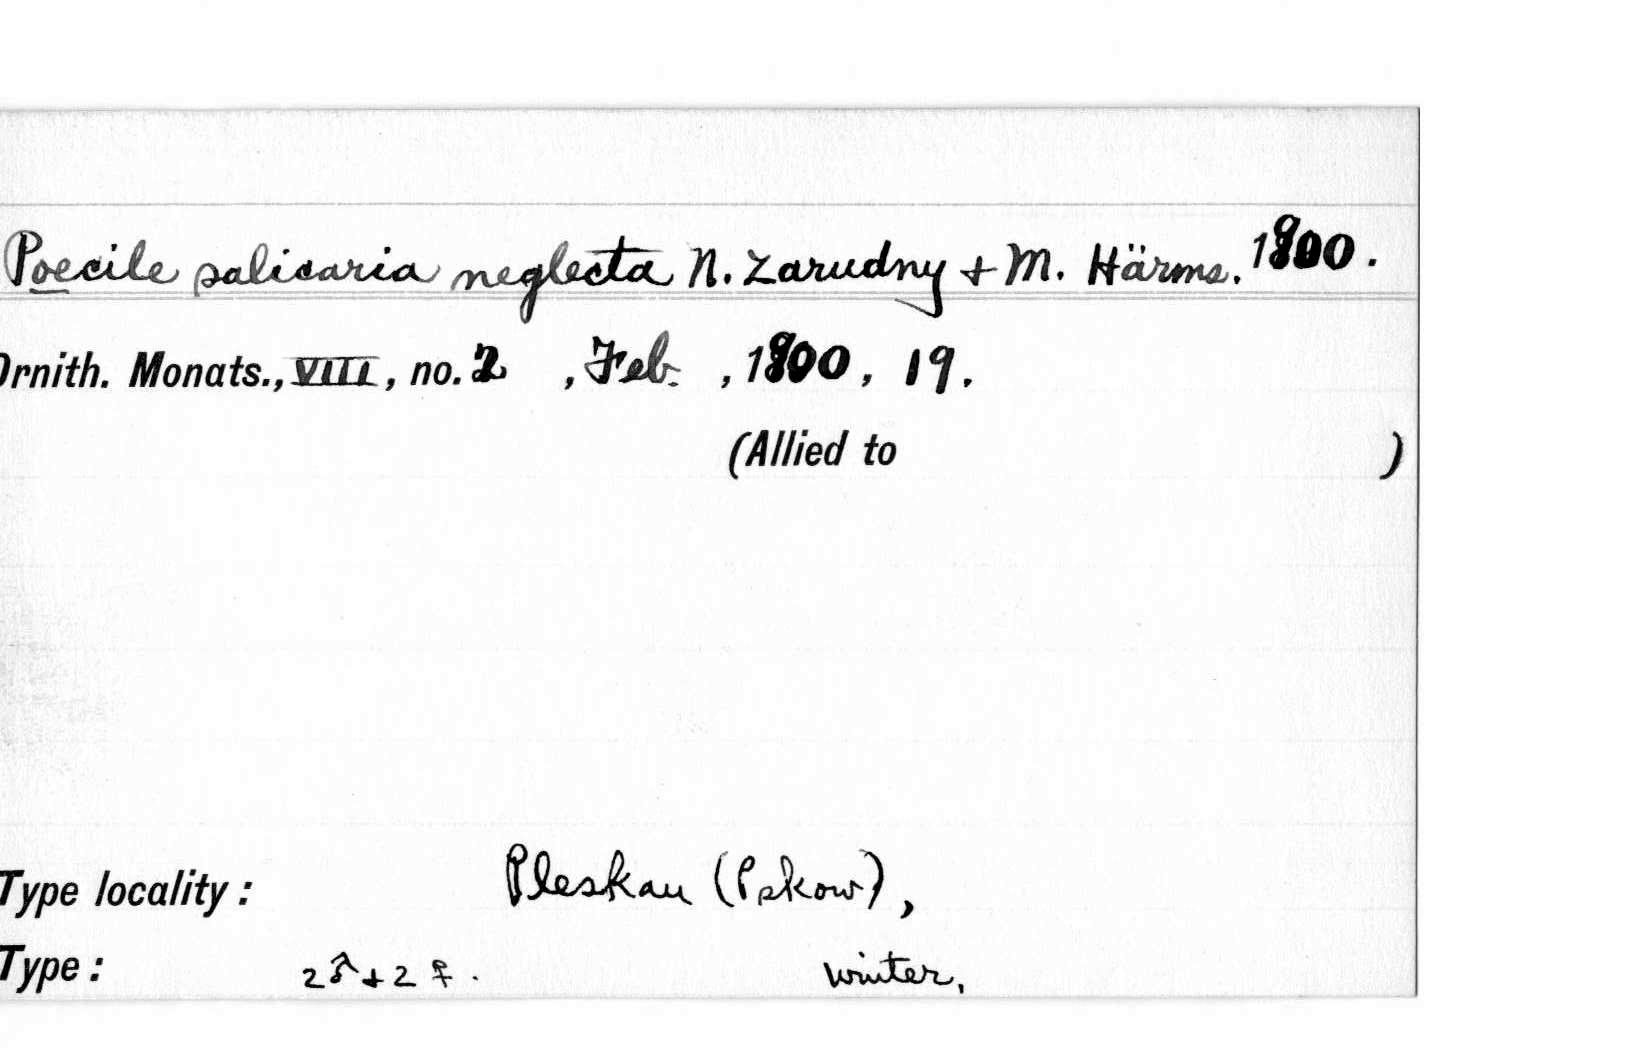 Poecile salicaria neglecta N. Zarudny + M. Härms. 1900.
Ornith. Monats., VIII, no. 2, Feb., 1900, 19.
(Allied to )
Type locality: Pleskau (Pskow),
Type: 2♂+2♀. winter.